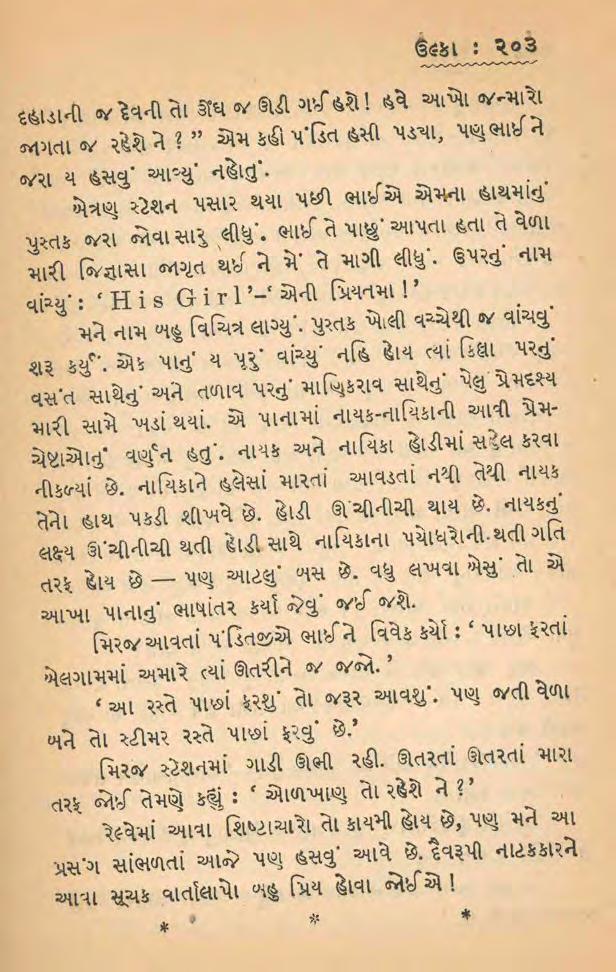 ઉલ્કા : ૨૦૩
દહાડાની જ દેવની તો ઊંઘ જ ઊડી ગઈ હશે! હવે આખો જન્મારો
જાગતા જ રહેશે ને ? ” એમ કહી પંડિત હસી પડ્યા, પણ ભાઈ ને
જરા ય હસવું આવ્યું નહોતું.
બેત્રણ સ્ટેશન પસાર થયા પછી ભાઈએ એમના હાથમાંનું
પુસ્તક જરા જોવા સારુ લીધું. ભાઈ તે પાછું આપતા હતા તે વેળા
મારી જિજ્ઞાસા જાગૃત થઈ ને મેં તે માગી લીધું. ઉપરનું નામ
વાંચ્યું : ‘ His Girl ’–‘ એની પ્રિયતમા ! ’
મને નામ બહુ વિચિત્ર લાગ્યું. પુસ્તક ખોલી વચ્ચેથી જ વાંચવું
શરૂ કર્યું. એક પાનું ય પૂરું વાંચ્યું નહિ હોય ત્યાં કિલ્લા પરનું
વસંત સાથેનું અને તળાવ પરનું માણિકરાવ સાથેનું પેલું પ્રેમદશ્ય
મારી સામે ખડાં થયાં. એ પાનામાં નાયક-નાયિકાની આવી પ્રેમ-
ચેષ્ટાઓનું વર્ણન હતું. નાયક અને નાયિકા હોડીમાં સહેલ કરવા
નીકળ્યાં છે. નાયિકાને હલેસાં મારતાં આવડતાં નથી તેથી નાયક
તેનો હાથ પકડી શીખવે છે. હોડી ઊંચીનીચી થાય છે. નાયકનું
લક્ષ્ય ઊંચીનીચી થતી હોડી સાથે નાયિકાના પયોધરોની થતી ગતિ
તરફ હોય છે — પણ આટલું બસ છે. વધુ લખવા બેસું તો એ
આખા પાનાનું ભાષાંતર કર્યા જેવું જઈ જશે.
મિરજ આવતાં પંડિતજીએ ભાઈને વિવેક કર્યો : ‘ પાછા ફરતાં
બેલગામમાં અમારે ત્યાં ઊતરીને જ જજો. ’
‘ આ રસ્તે પાછાં ફરશું તો જરૂર આવશું. પણ જતી વેળા
બને તો સ્ટીમર રસ્તે પાછાં ફરવું છે.’
મિરજ સ્ટેશનમાં ગાડી ઊભી રહી. ઊતરતાં ઊતરતાં મારા
તરફ જોઈ તેમણે કહ્યું : ‘ ઓળખાણ તો રહેશે ને ?’
રેલ્વેમાં આવા શિષ્ટાચારો તો કાયમી હોય છે, પણ મને આ
પ્રસંગ સાંભળતાં આજે પણ હસવું આવે છે. દૈવરૂપી નાટકકારને
આવા સૂચક વાર્તાલાપો બહુ પ્રિય હોવા જોઈએ !
* * *